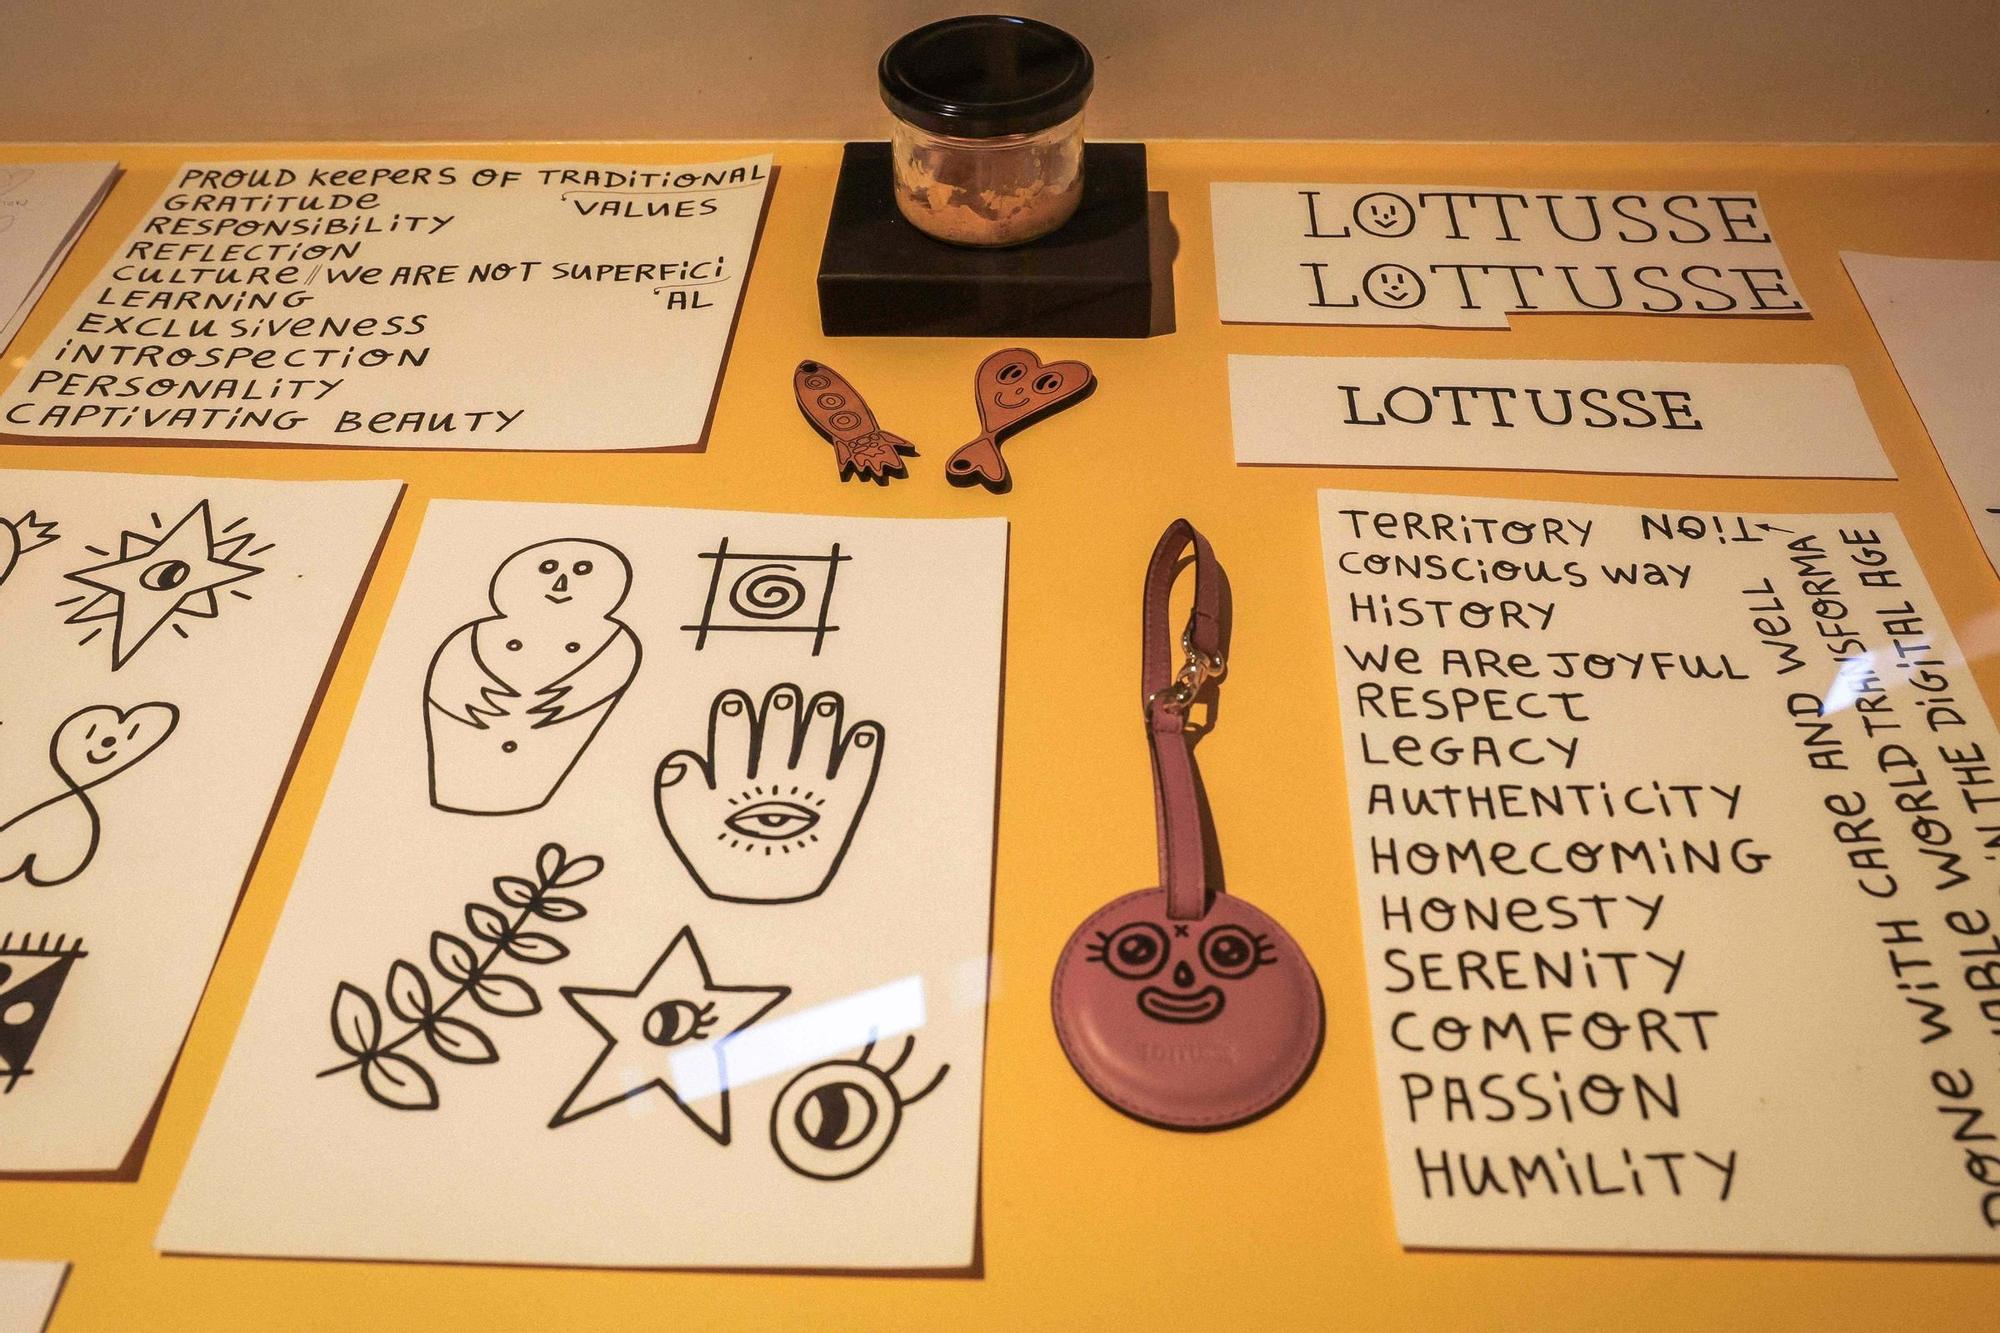 PROUD KEEPERS OF TRADITIONAL
VALUES
GRATITUDE
RESPONSIBILITY
REFLECTION
CULTURE // WE ARE NOT SUPERFICI
AL
LEARNING
EXCLUSIVENESS
INTROSPECTION
PERSONALITY
CAPTIVATING BEAUTY
LOTTUSSE
LOTTUSSE
LOTTUSSE
LOTTUSSE
TERRITORY
CONSCIOUS WAY
HISTORY
WE ARE JOYFUL
RESPECT
LEGACY
AUTHENTICITY
HOMECOMING
HONESTY
SERENITY
COMFORT
PASSION
HUMILITY
DONE WITH CARE AND WELL
WORLD TRANSFORMA
TION
WORLD
IN THE DIGITAL AGE